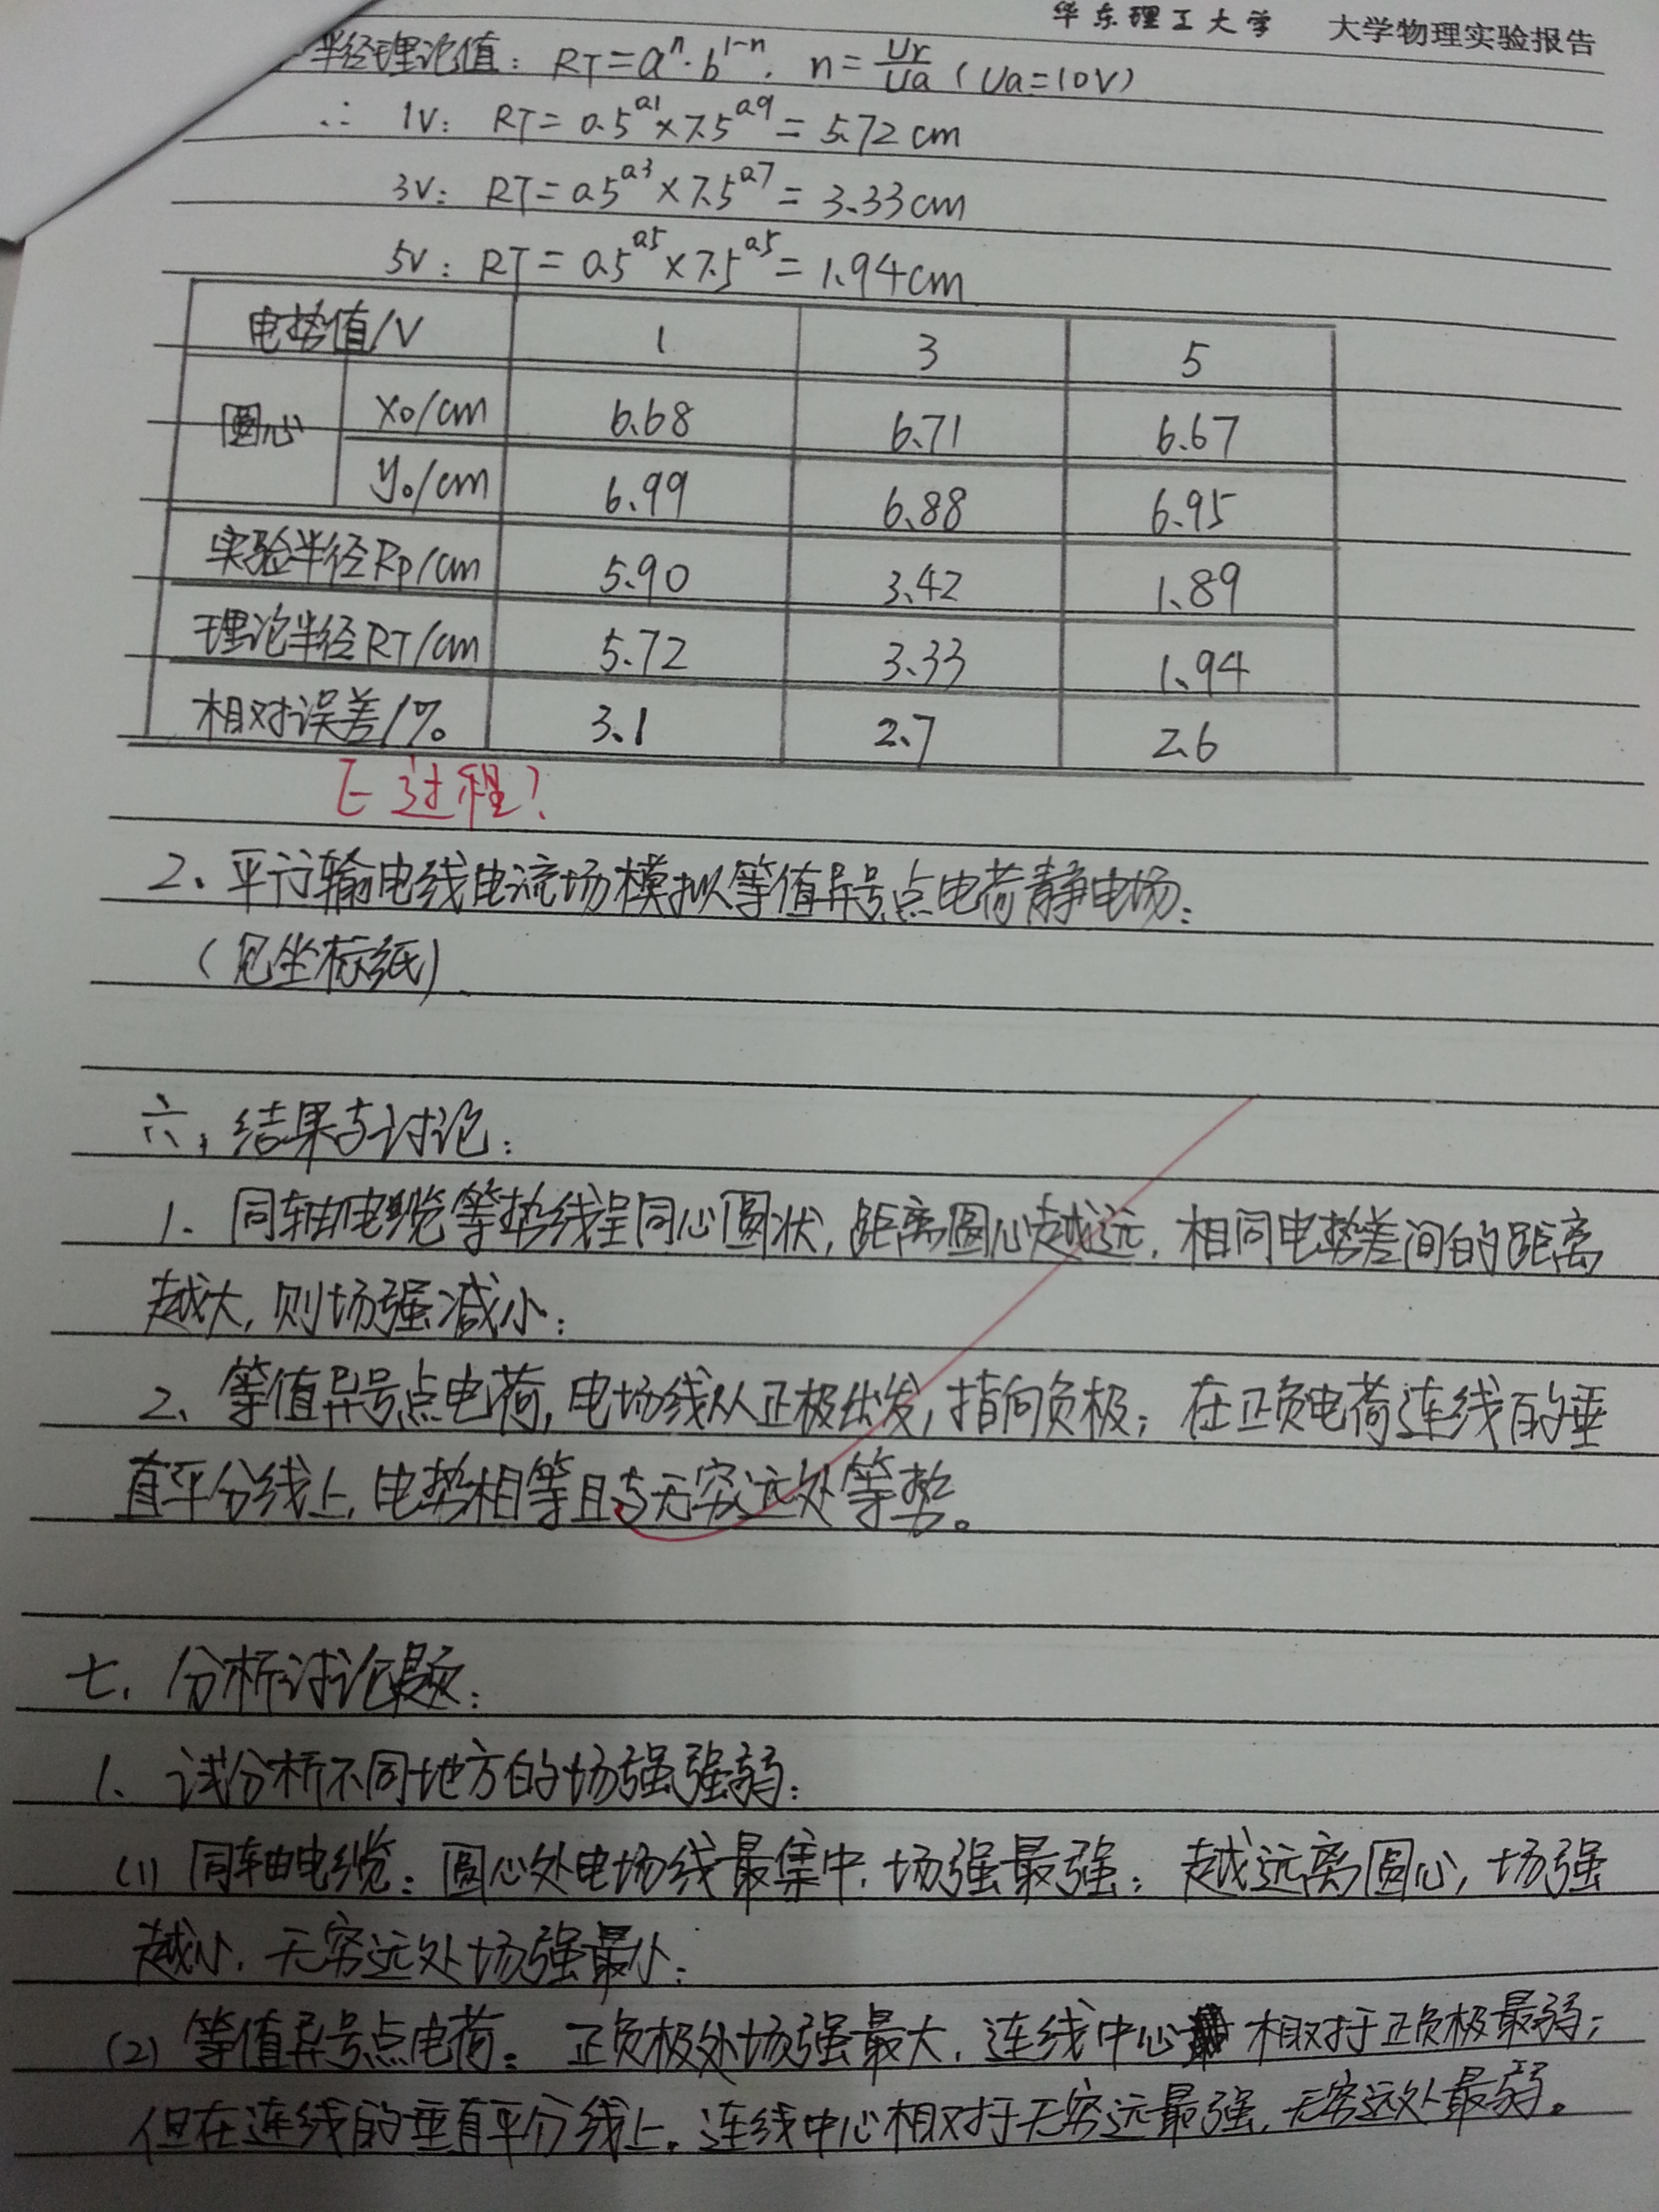 华东理工大学 大学物理实验报告
半径理论值: RT=aⁿ·b¹⁻ⁿ. n=Ur/Ua (Ua=10V)
∴ 1V: RT=0.5^0.1×7.5^0.9=5.72cm
3V: RT=0.5^0.3×7.5^0.7=3.33cm
5V: RT=0.5^0.5×7.5^0.5=1.94cm
电势值/V 1 3 5
圆心 x₀/cm 6.68 6.71 6.67
y₀/cm 6.99 6.88 6.95
实验半径Rp/cm 5.90 3.42 1.89
理论半径RT/cm 5.72 3.33 1.94
相对误差/% 3.1 2.7 2.6
E过程?
2、平行输电线电流场模拟等值异号点电荷静电场:
(见坐标纸)
六、结果与讨论:
1、同轴电缆等势线呈同心圆状,距离圆心越远,相同电势差间的距离
越大,则场强减小;
2、等值异号点电荷,电场线从正极出发,指向负极;在正负电荷连线的垂
直平分线上,电势相等且与无穷远处等势。
七、分析讨论题:
1、试分析不同地方的场强强弱:
(1) 同轴电缆:圆心处电场线最集中,场强最强;越远离圆心,场强
越小,无穷远处场强最小;
(2) 等值异号点电荷:正负极处场强最大,连线中心相对于正负极最弱;
但在连线的垂直平分线上,连线中心相对于无穷远最强,无穷远处最弱。